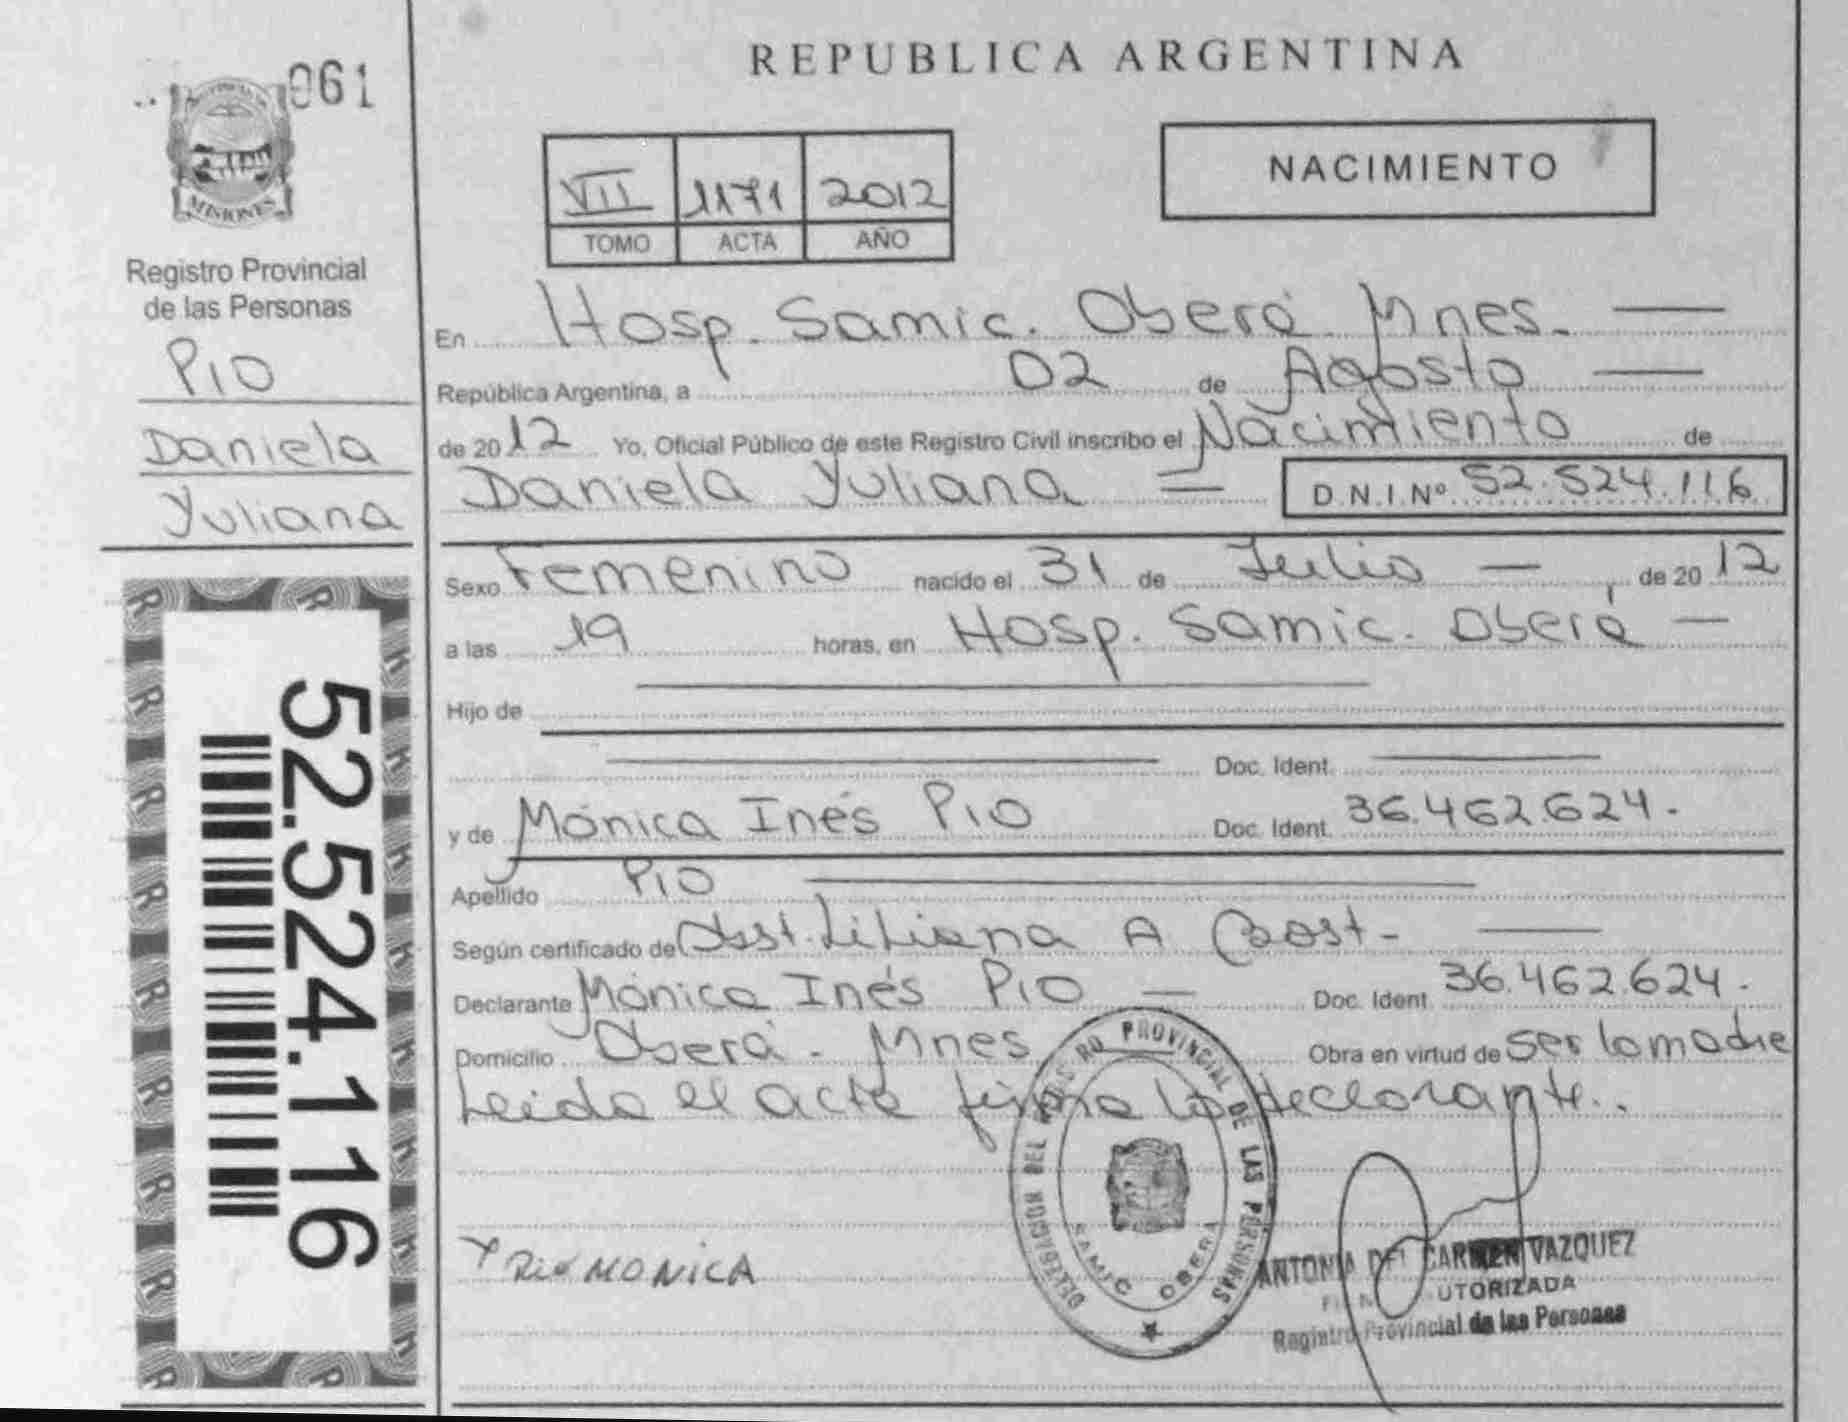 061
MISIONES
Registro Provincial
de las Personas
Pio
Daniela
Yuliana
52.524.116
REPUBLICA ARGENTINA
VII 1171 2012
TOMO ACTA AÑO
NACIMIENTO
En Hosp. Samic. Oberá Mnes.
República Argentina, a 02 de Agosto
de 2012 Yo, Oficial Público de este Registro Civil inscribo el Nacimiento de
Daniela Yuliana D.N.I.Nº 52.524.116
Sexo Femenino nacido el 31 de Julio, de 2012
a las 19 horas, en Hosp. Samic. Oberá
Hijo de
Doc. Ident.
y de Mónica Inés Pio Doc. Ident. 36.462.624.
Apellido Pio
Según certificado de Obst. Liliana A Bost.
Declarante Mónica Inés Pio Doc. Ident. 36.462.624.
Domicilio Oberá - Mnes Obra en virtud de ser la madre
Leida el acta firma la declarante..
DELEGACION DEL REGISTRO PROVINCIAL DE LAS PERSONAS
SAMIC OBERA
Pio MONICA
ANTONIA DEL CARMEN VAZQUEZ
AUTORIZADA
Registro Provincial de las Personas